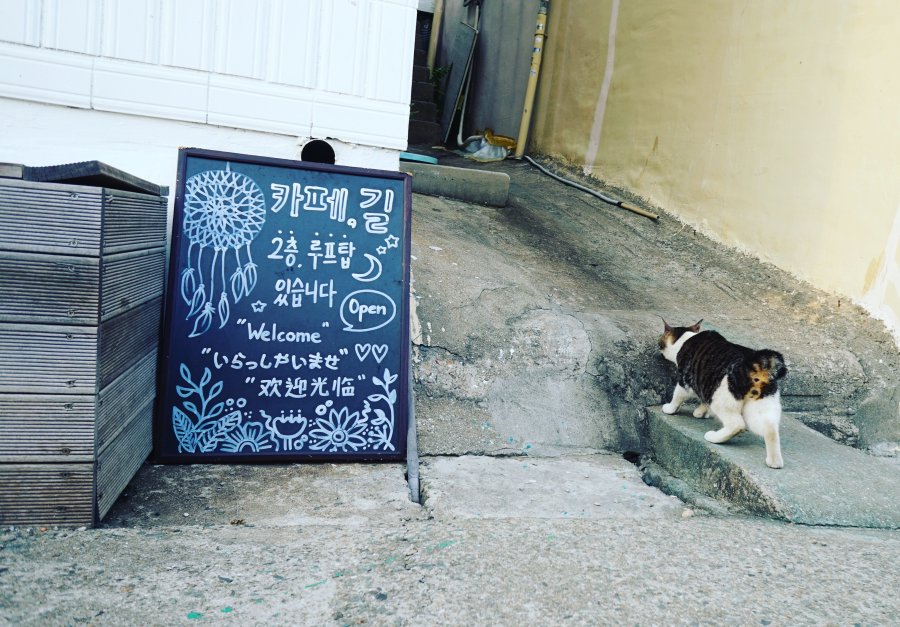 카페, 길
2층, 루프탑
있습니다
Open
"Welcome"
"いらっしゃいませ"
"欢迎光临"